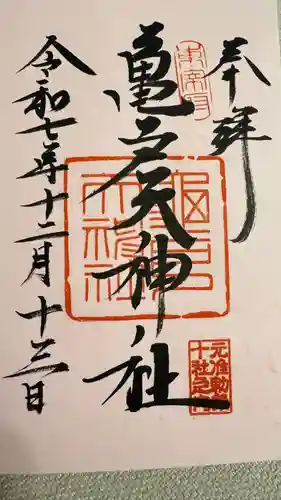 奉拝
亀戸天神社
令和七年十二月十三日
元准勅祭
十社之内